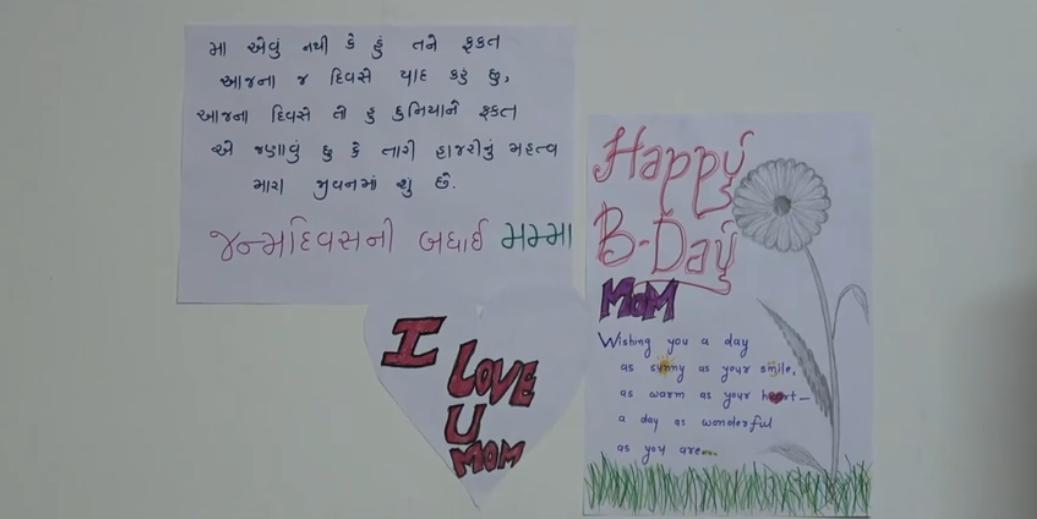 મા એવું નથી કે હું તને ફકત
આજના જ દિવસે યાદ કરું છુ,
આજના દિવસે તો હુ દુનિયાને ફકત
એ જણાવું છુ કે તારી હાજરીનું મહત્વ
મારા જીવનમાં શું છે.
જન્મદિવસની બધાઈ મમ્મા
I
LOVE
U
MOM
Happy
B-Day
MOM
Wishing you a day
as sunny as your smile,
as warm as your heart—
a day as wonderful
as you are...